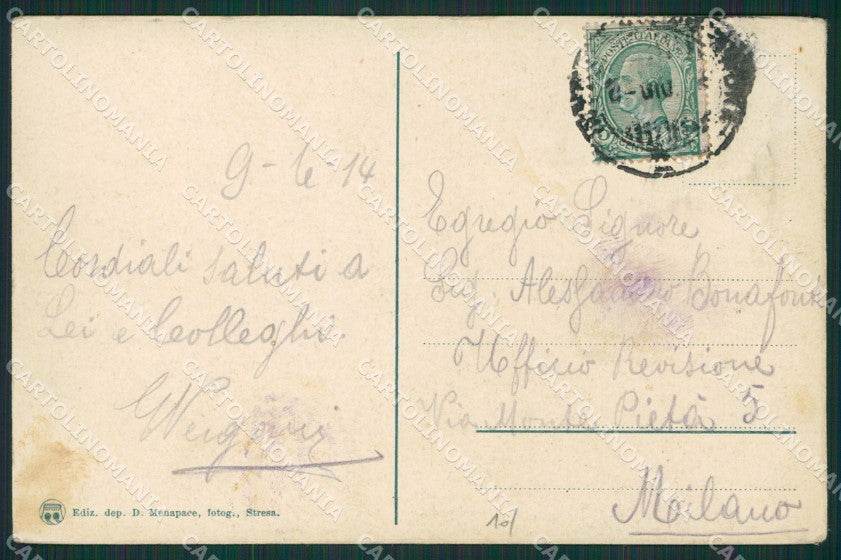 9-6 14
Cordiali saluti a
Lei e Colleghi.
Egregio Signore
Sig. Alessandro Bonafonte
Ufficio Revisione
Via Monte Pietà 5
Milano
Ediz. dep. D. Menapace, fotog., Stresa.
10/
POSTE ITALIANE
CARTOLINOMANIA